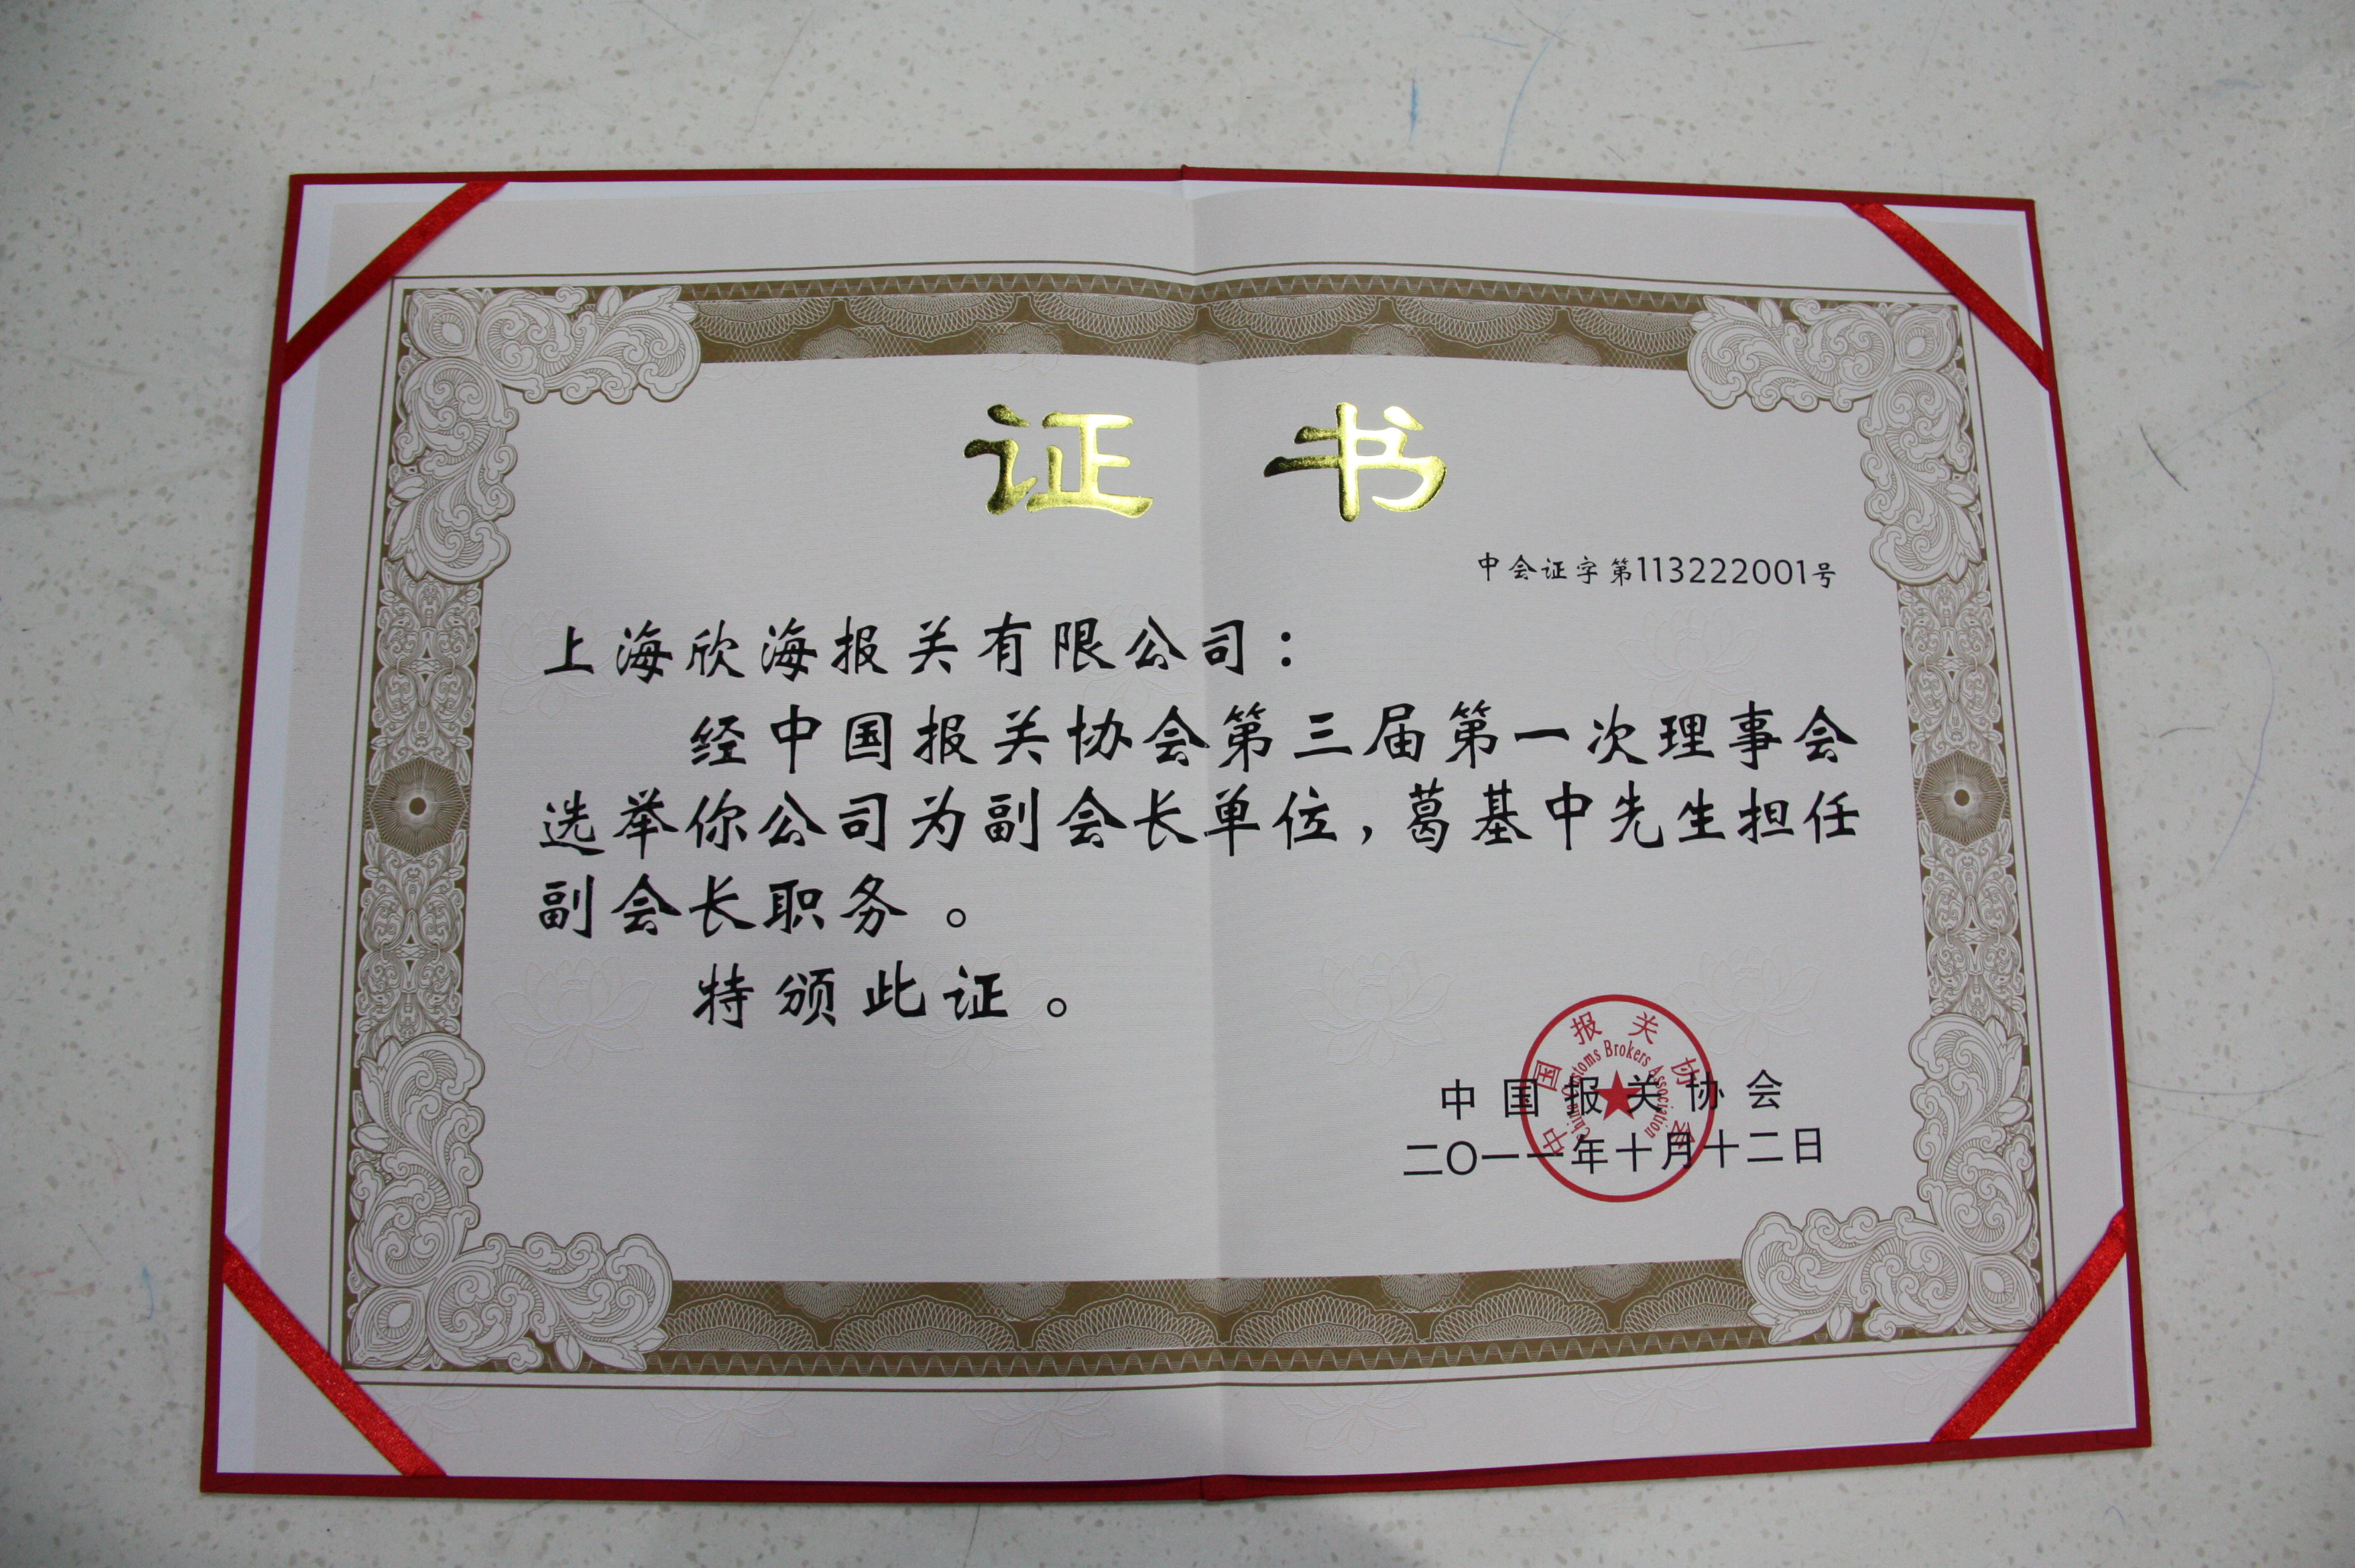 证书
中会证字第113222001号
上海欣海报关有限公司：
经中国报关协会第三届第一次理事会
选举你公司为副会长单位，葛基中先生担任
副会长职务。
特颁此证。
中国报关协会
China Customs Brokers Association
中国报关协会
二〇一一年十月十二日